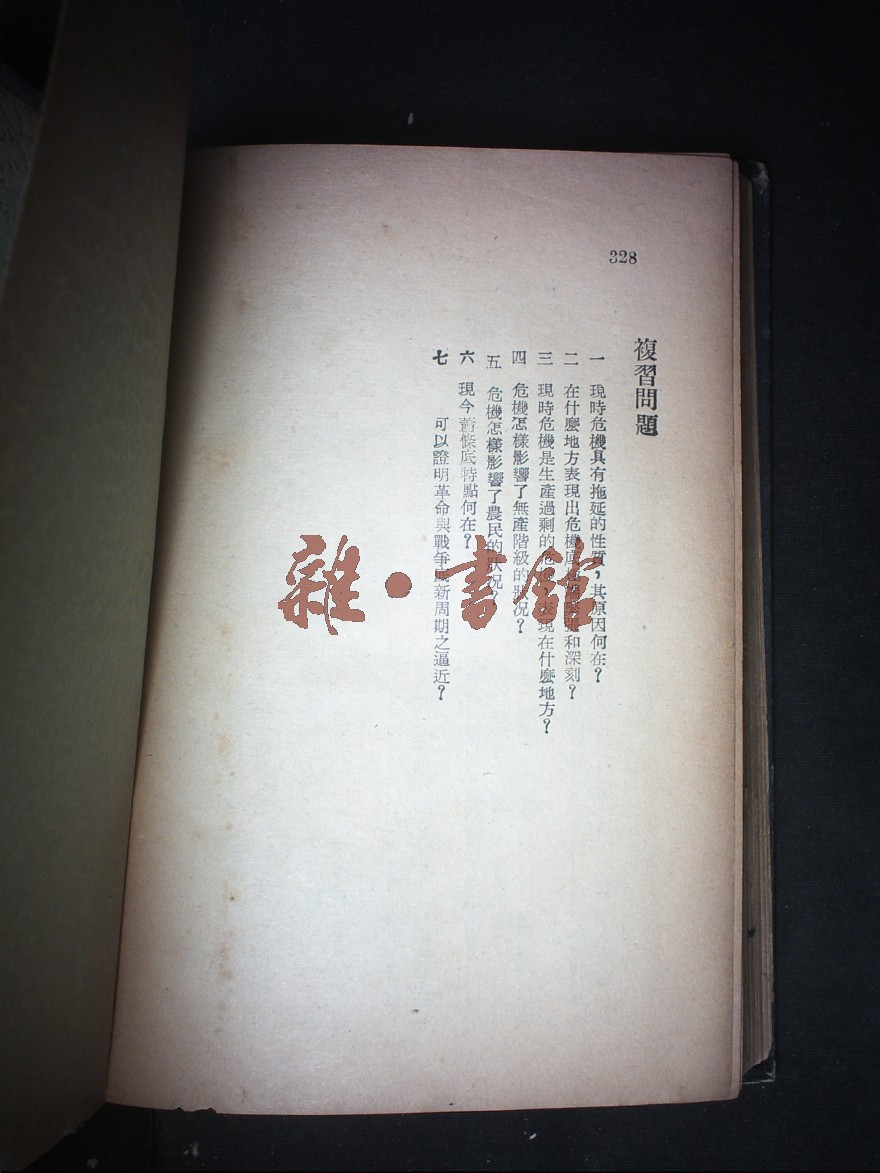 328
複習問題
一 現時危機具有拖延的性質，其原因何在？
二 在什麼地方表現出危機底 和深刻？
三 現時危機是生產過剩的 表現在什麼地方？
四 危機怎樣影響了無產階級的狀況？
五 危機怎樣影響了農民的狀況？
六 現今蕭條底特點何在？
七 可以證明革命與戰爭底新周期之逼近？
雜·書館